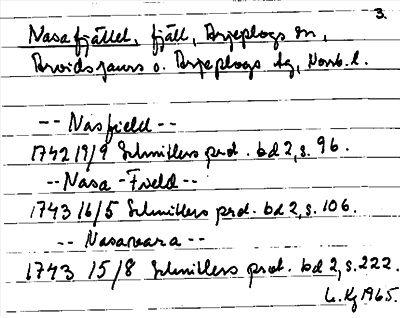 3.
Nasafjället, fjäll, Arjeplogs sn,
Arvidsjaurs o. Arjeplogs tg, Norrb. l.
-- Nasfield --
1742 19/9 Schnitlers prot. bd 2, s. 96.
-- Nasa-Field --
1743 16/5 Schnitlers prot. bd 2, s. 106.
-- Nasavara --
1743 15/8 Schnitlers prot. bd 2, s. 222.
1965.